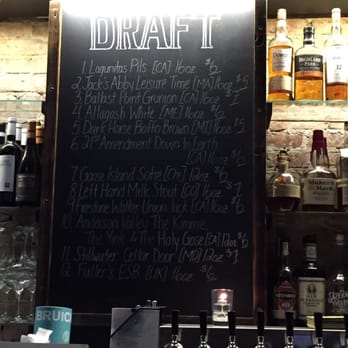 DRAFT
1. Lagunitas Pils [CA] 16oz $6
2. Jack's Abby Leisure Time [MA] 16oz $5
3. Ballast Point Grunion [CA] 16oz $7
4. Allagash White [ME] 16oz $6
5. Dark Horse Boffo Brown [MI] 16oz $5
6. 21st Amendment Down to Earth
[CA] 16oz $6
7. Goose Island Sofie [CHI] 12oz $6
8. Left Hand Milk Stout [CO] 16oz $7
9. Firestone Walker Union Jack [CA] 16oz $6
10. Anderson Valley The Kimmie,
The Yink & The Holy Gose [CA] 12oz $6
11. Stillwater Cellar Door [MD] 16oz $7
12. Fuller's ESB [UK] 16oz $6
HIGHLAND
PARK
12
Maker's
Mark
BRUIC